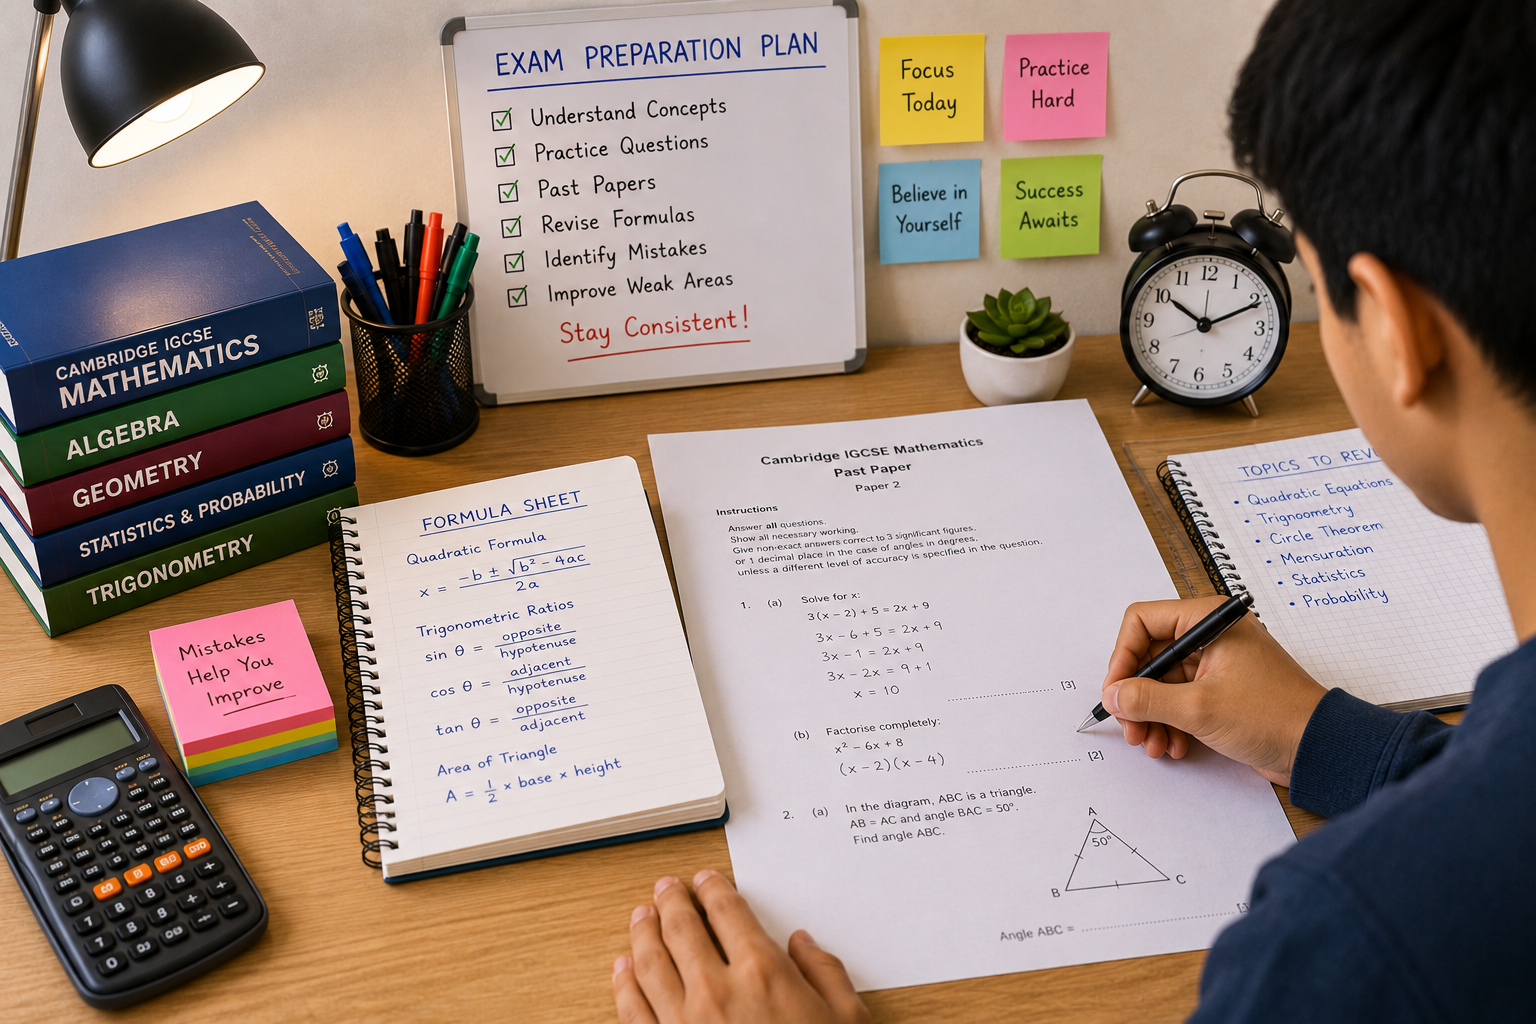 EXAM PREPARATION PLAN
Understand Concepts
Practice Questions
Past Papers
Revise Formulas
Identify Mistakes
Improve Weak Areas
Stay Consistent!
Focus
Today
Practice
Hard
Believe in
Yourself
Success
Awaits
11 12 1
10 2
9 3
8 4
7 6 5
CAMBRIDGE IGCSE
MATHEMATICS
ALGEBRA
GEOMETRY
STATISTICS & PROBABILITY
TRIGONOMETRY
Mistakes
Help You
Improve
FORMULA SHEET
Quadratic Formula
x = (-b ± √(b² - 4ac)) / 2a
Trigonometric Ratios
sin θ = opposite / hypotenuse
cos θ = adjacent / hypotenuse
tan θ = opposite / adjacent
Area of Triangle
A = 1/2 × base × height
Cambridge IGCSE Mathematics
Past Paper
Paper 2
Instructions
Answer all questions.
Show all necessary working.
Give non-exact answers correct to 3 significant figures,
or 1 decimal place in the case of angles in degrees,
unless a different level of accuracy is specified in the question.
1. (a) Solve for x:
3(x − 2) + 5 = 2x + 9
3x − 6 + 5 = 2x + 9
3x − 1 = 2x + 9
3x − 2x = 9 + 1
x = 10
[3]
(b) Factorise completely:
x² − 6x + 8
(x − 2)(x − 4)
[2]
2. (a) In the diagram, ABC is a triangle.
AB = AC and angle BAC = 50°.
Find angle ABC.
A
50°
B C
Angle ABC =
TOPICS TO
Quadratic Equations
Trignoometry
Circle Theorem
Mensuration
Statistics
Probability